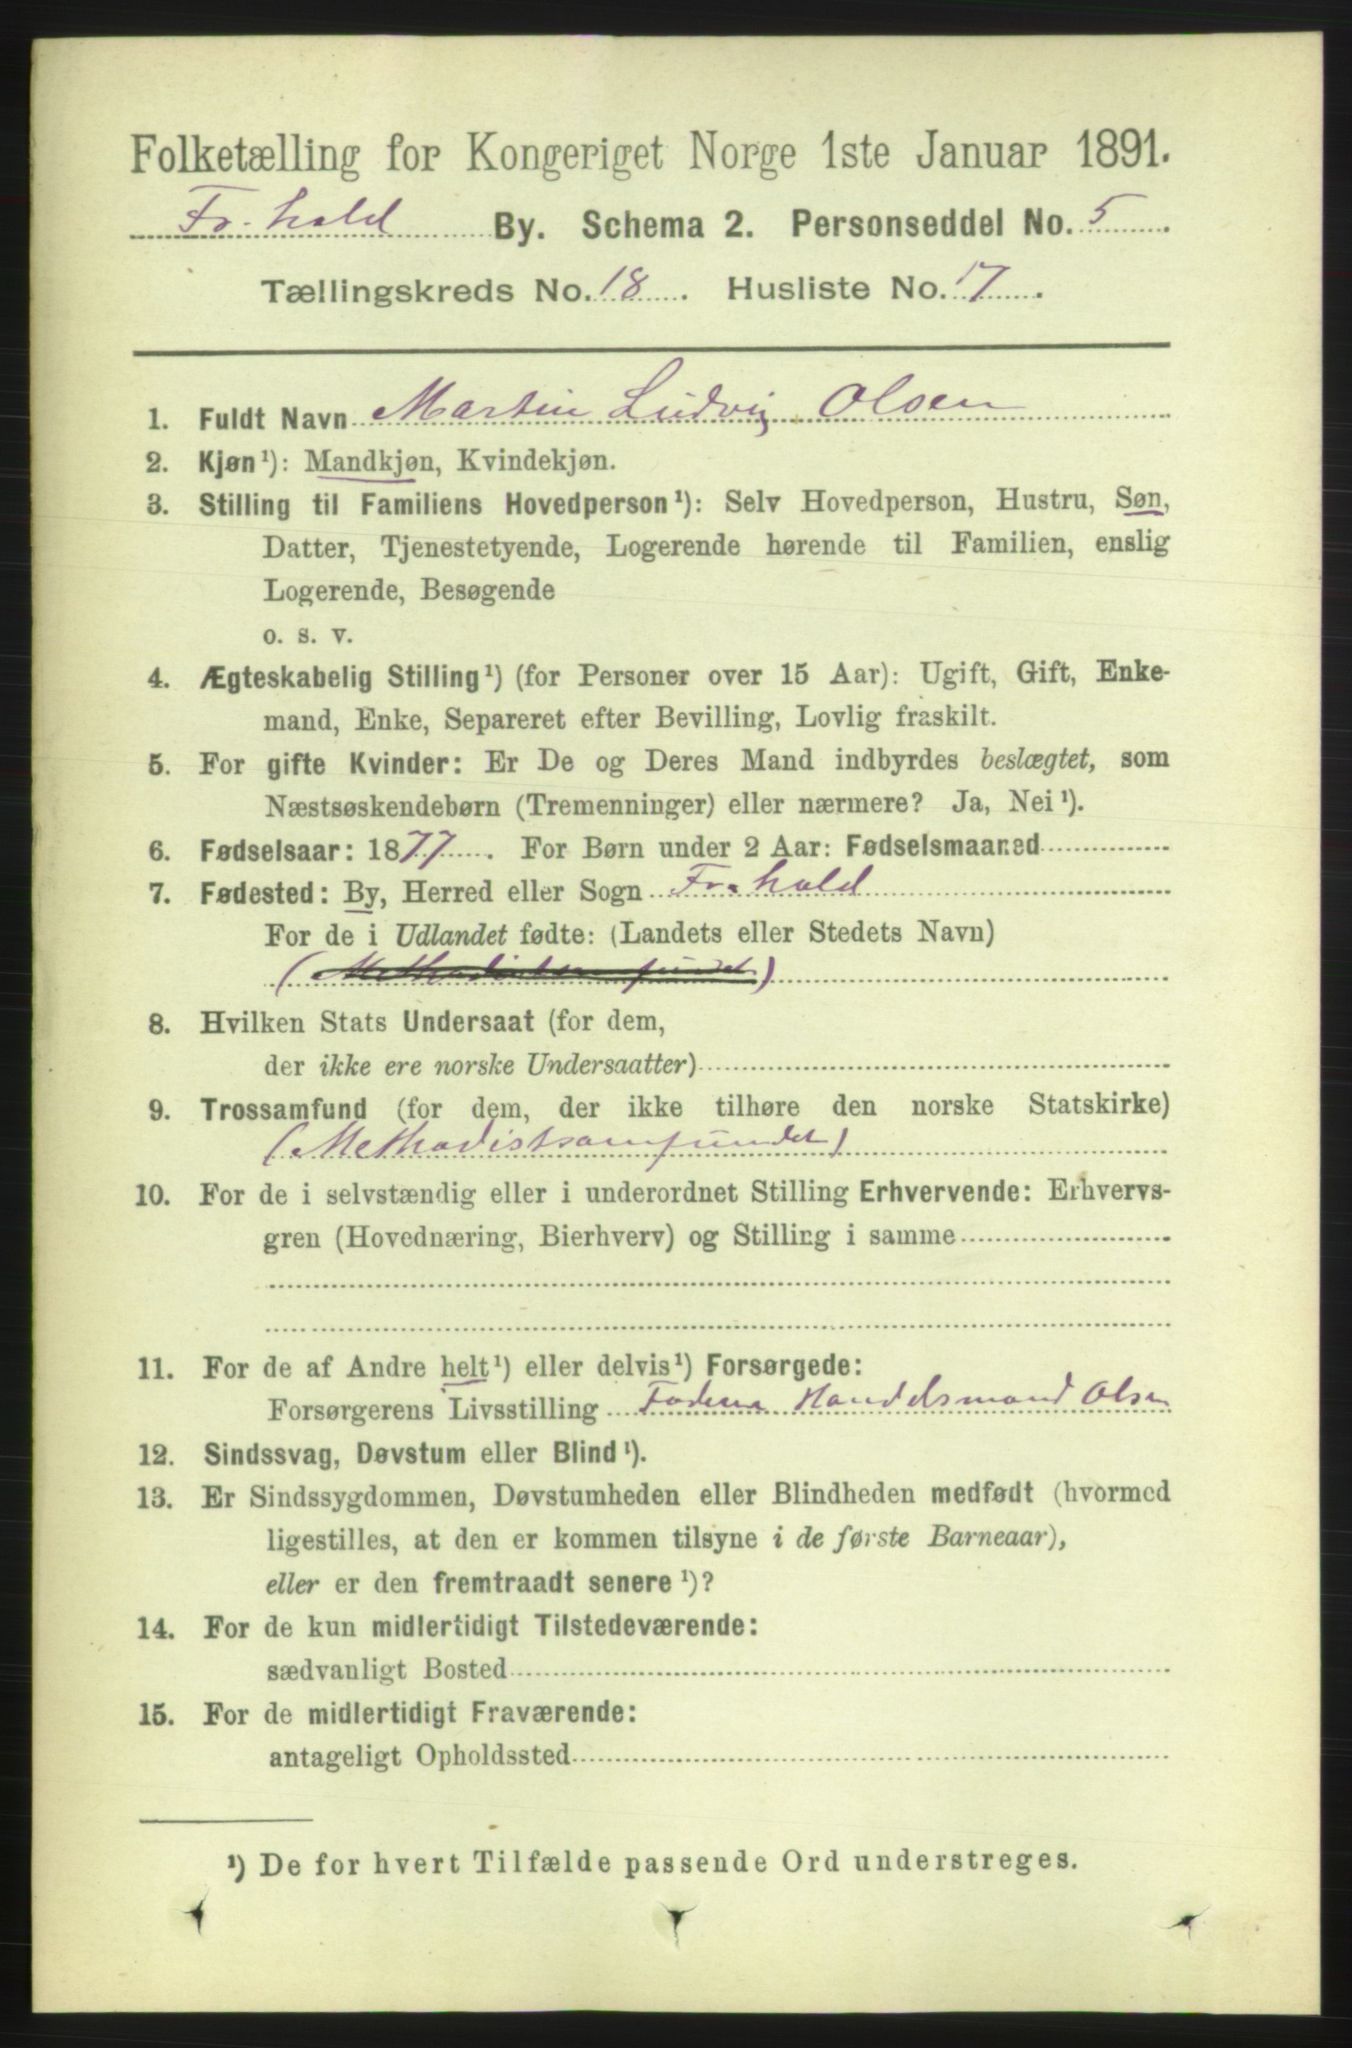 Folketælling for Kongeriget Norge 1ste Januar 1891.
Fr.hald By. Schema 2. Personseddel No. 5.
Tællingskreds No. 18. Husliste No. 17.
1. Fuldt Navn Martin Ludvig Olsen
2. Kjøn¹): Mandkjøn, Kvindekjøn.
3. Stilling til Familiens Hovedperson¹): Selv Hovedperson, Hustru, Søn,
Datter, Tjenestetyende, Logerende hørende til Familien, enslig
Logerende, Besøgende
o. s. v.
4. Ægteskabelig Stilling¹) (for Personer over 15 Aar): Ugift, Gift, Enke-
mand, Enke, Separeret efter Bevilling, Lovlig fraskilt.
5. For gifte Kvinder: Er De og Deres Mand indbyrdes beslægtet, som
Næstsøskendebørn (Tremenninger) eller nærmere? Ja, Nei¹).
6. Fødselsaar: 1877. For Børn under 2 Aar: Fødselsmaaned
7. Fødested: By, Herred eller Sogn Fr.hald
For de i Udlandet fødte: (Landets eller Stedets Navn)
(Methodistsamfundet)
8. Hvilken Stats Undersaat (for dem,
der ikke ere norske Undersaatter)
9. Trossamfund (for dem, der ikke tilhøre den norske Statskirke)
(Methodistsamfundet)
10. For de i selvstændig eller i underordnet Stilling Erhvervende: Erhvervs-
gren (Hovednæring, Bierhverv) og Stilling i samme
11. For de af Andre helt¹) eller delvis¹) Forsørgede:
Forsørgerens Livsstilling Faderen Handelsmand Olsen
12. Sindssvag, Døvstum eller Blind¹).
13. Er Sindssygdommen, Døvstumheden eller Blindheden medfødt (hvormed
ligestilles, at den er kommen tilsyne i de første Barneaar),
eller er den fremtraadt senere¹)?
14. For de kun midlertidigt Tilstedeværende:
sædvanligt Bosted
15. For de midlertidigt Fraværende:
antageligt Opholdssted
¹) De for hvert Tilfælde passende Ord understreges.